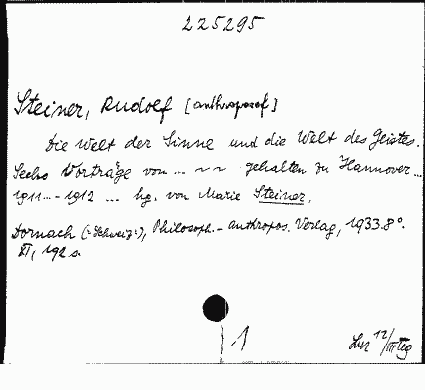 225295
Steiner, Rudolf [anthroposof]
Die Welt der Sinne und die Welt des Geistes.
Sechs Vorträge von ... ~ ~ gehalten zu Hannover ...
1911... - 1912 ... hg. von Marie Steiner.
Dornach (:Schweiz:), Philosoph. - anthropos. Verlag, 1933. 8°.
XI, 192 s.
1
12/III